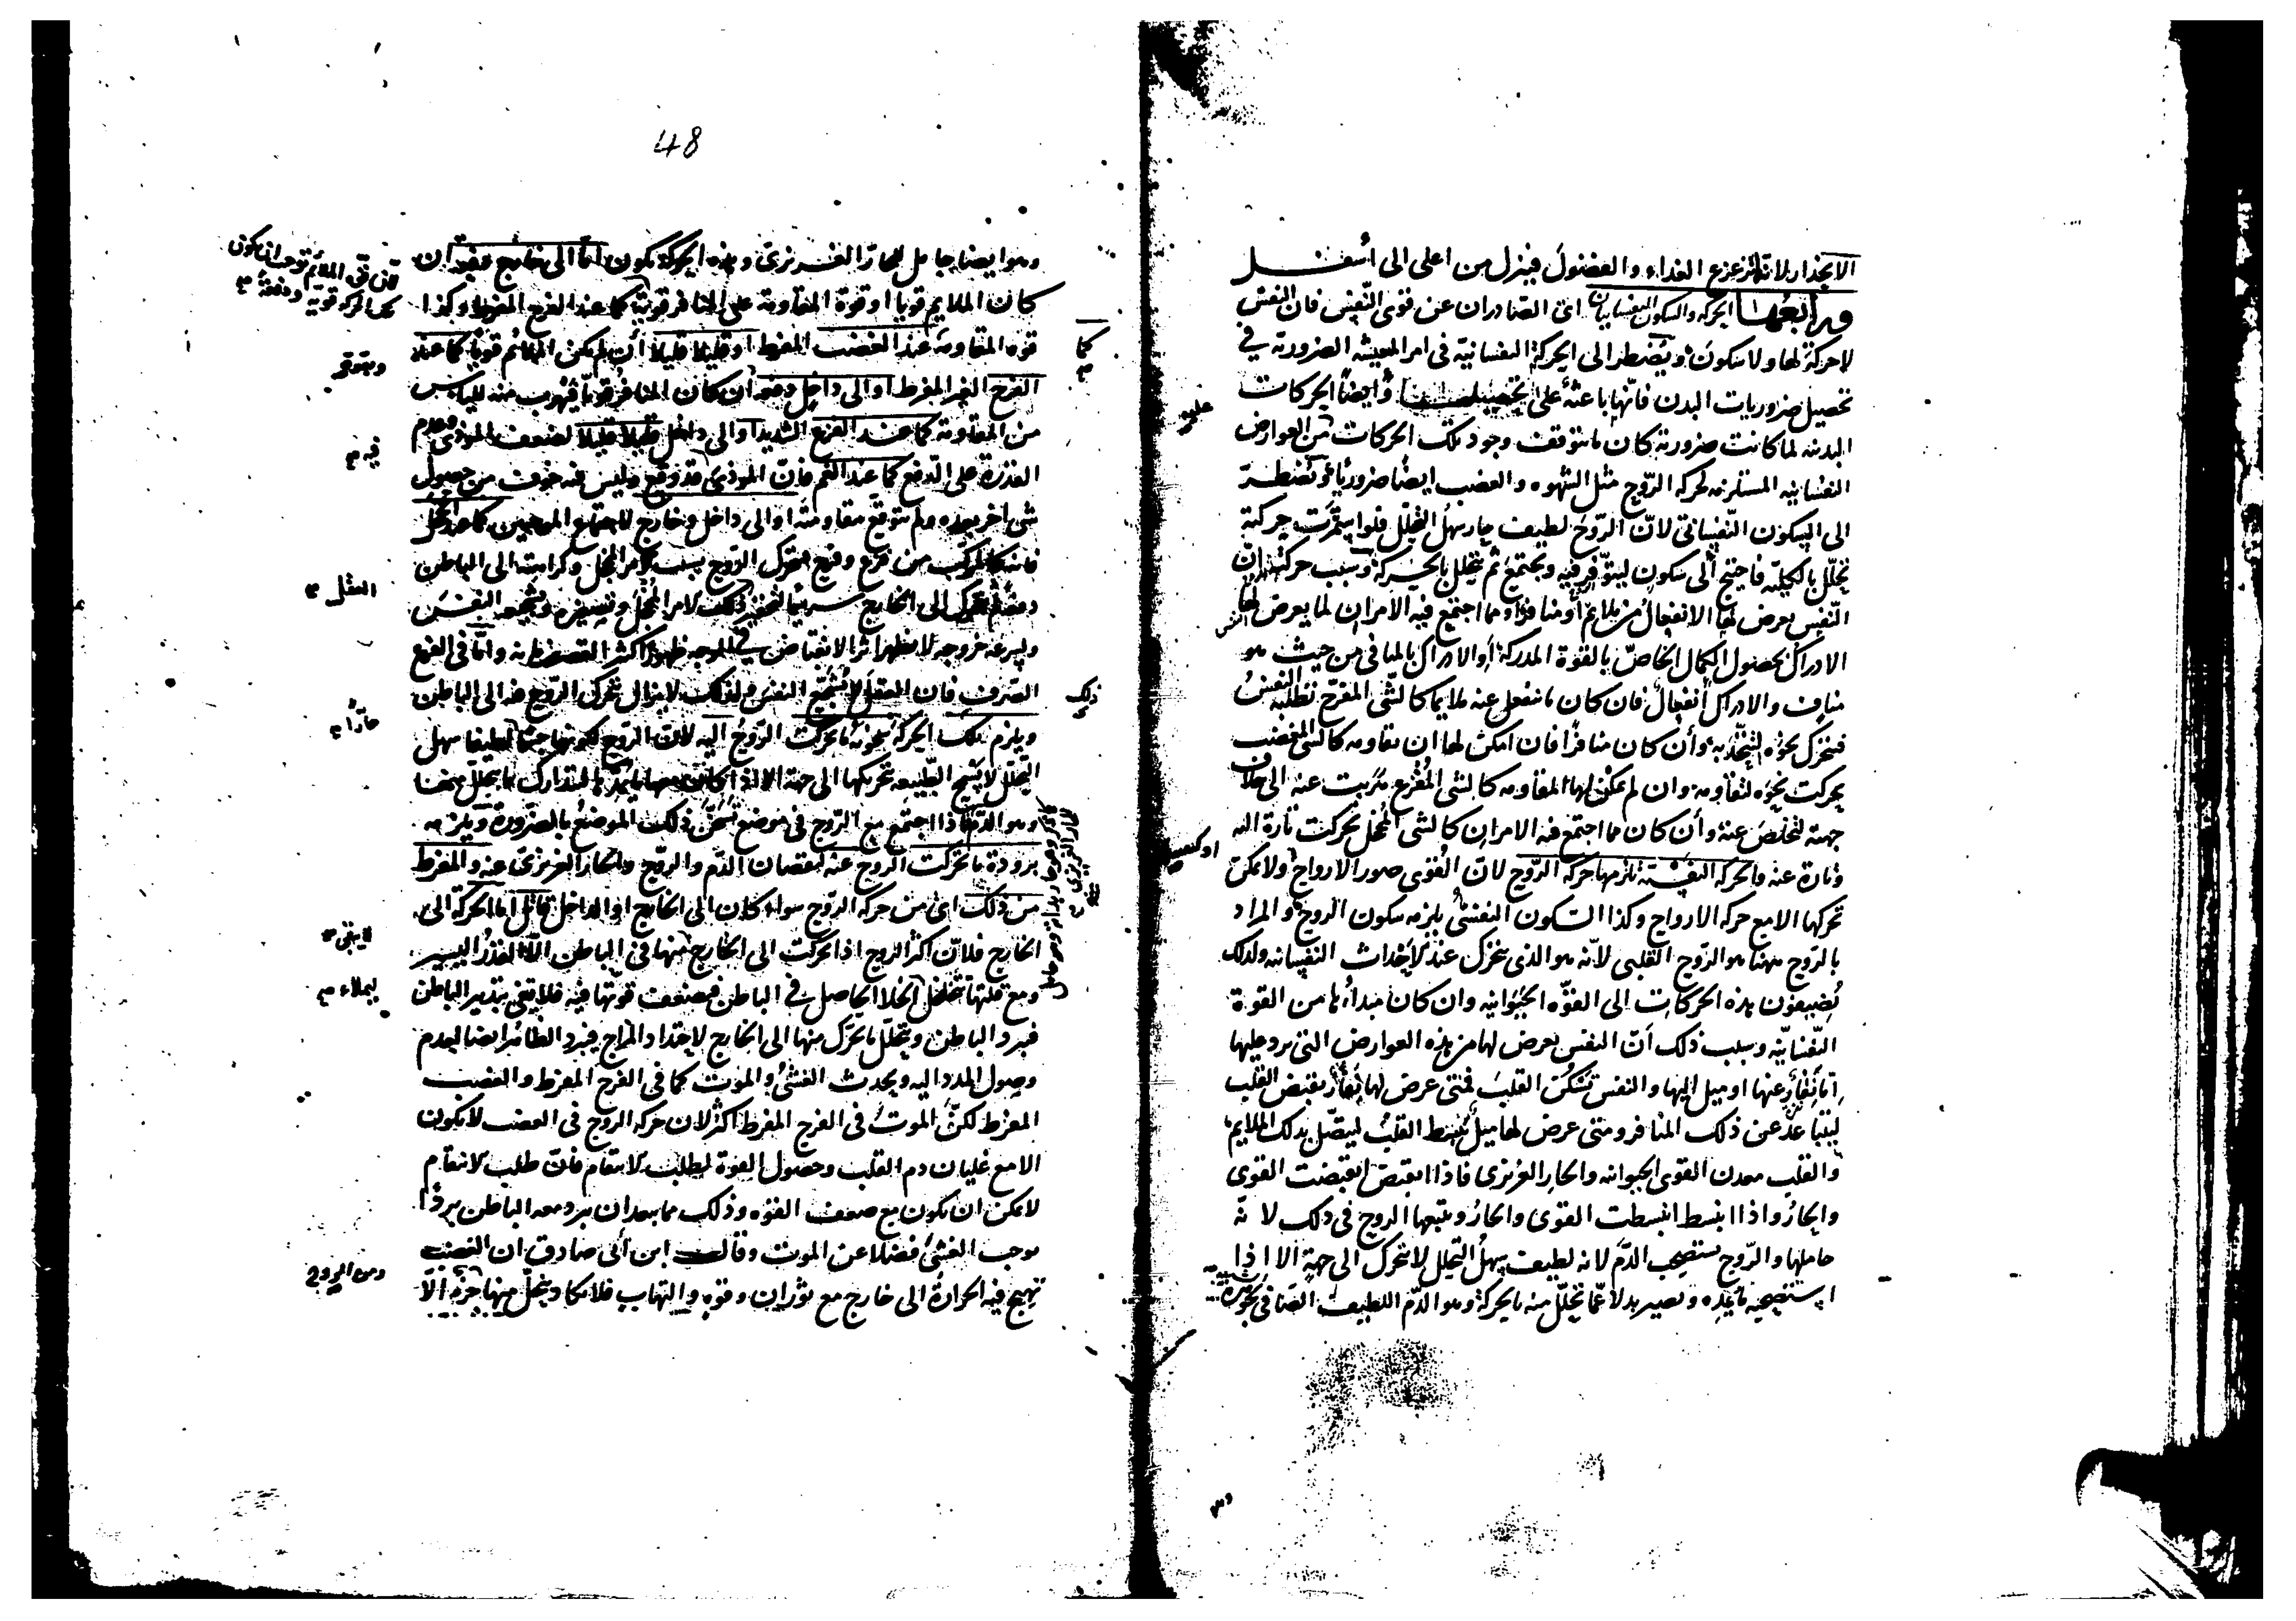 الانحدار لانها تزعزع الغداء والفضول فينزل من اعلى الى أسفل
ورابعها الحركة والسكون النفسانيان اى الصادران عن قوى النّفس فان النفس
لا حركة لها ولا سكون ويضطر الى الحركة النفسانيّة فى امر المعيشه الضرورية فى
تحصيل ضروريات البدن فانّها باعثة على تحصيلها وأيضًا الحركات
البدنيه لما كانت ضرورية كان ما يتوقف وجود تلك الحركات من العوارض
النفسانيه المستلزمه لحركة الرّوح مثل الشهوه والغضب ايضًا ضروريًا ويضطرّ
الى السكون النّفسانى لانّ الرّوح لطيف حار سهل التحلّل فلو استمرّت حركته
تحلّل بالكليّه فاحتيج الى سكون ليتوفّر فيه ويجتمع ثم يتحلل بالحركة وسبب حركتها انّ
النّفس يعرض لها الانفعال من ملايم أو منافر او مما اجتمع فيه الامران لما يعرض لها
الادراك بحصول الكمال الخاصّ بالقوة المدركة أو الادراك بالمنافى من حيث هو
مناف والادراك انفعال فان كان ما ينفعل عنه ملايما كالشى المفرح تطلبه النفس
فتتحرك نحوه لتتّحد به وأن كان منافرًا فان امكن لها ان تقاومه كالشى المغضب
تحركت نحوه لتقاومه وان لم يمكن لها المقاومه كالشى المفزع هربت عنه الى خلاف
جهته لتخلص عنه وأن كان مما اجتمع فيه الامران كالشى المخجل تحركت تارة اليه
وتارة عنه والحركة النفسيّة تلزمها حركة الرّوح لانّ القوى صور الارواح ولا يمكن
تحركها الا مع حركة الارواح وكذا السّكون النفسىّ يلزمه سكون الروح والمراد
بالرّوح ههنا هو الرّوح القلبى لانّه هو الذى يتحرك عند الاحداث النفسانيه ولذلك
يُضيفون هذه الحركات الى القوّه الحيوانيه وان كان مبدأها من القوة
النّفسانيّه وسبب ذلك انّ النفس يعرض لها من هذه العوارض التى يرد عليها
امّا نفار عنها او ميل اليها والنفس تسكن القلب فمتى عرض لها نفار يقبض القلب
ليتباعد عن ذلك المنافر ومتى عرض لها ميل ينبسط القلب ليتصل بذلك الملايم
والقلب معدن القوى الحيوانيه والحار الغريزى فاذا انقبض انقبضت القوى
والحار واذا انبسط انبسطت القوى والحار ويتبعها الروح فى ذلك لانّه
حاملها والرّوح يستصحب الدّم لانه لطيف سهل التحلل لا يتحرك الى جهة الا اذا
استصحب ما يمدّه ويصير بدلًا عمّا يتحلّل منه بالحركة وهو الدّم اللطيف الصّافى
48
وهو ايضا حامل للحارّ الغريزىّ وهذه الحركة تكون امّا الى خارج دفعة ان
كان الملايم قويا او قوة المقاومة على المنافر قويّة كما عند الفرح المفرط وكذا
قوه المقاومة عند الغضب المفرط او قليلا قليلا أن لم يكن الملايم قويا كما عند
الفرح الغير المفرط او الى داخل دفعة أن كان المنافر قويّا فيهرب منه لليأس
من المقاومة كما عند الفزع الشديد او الى داخل قليلا قليلا لضعف الموذى وعدم
القدرة على الدّفع كما عند الغم فانّ الموذى قد وقع وليس فيه خوف من حصول
شى اخر بعده ولم يتوقع مقاومته او الى داخل وخارج لاجتماع الموجبين كما عند الخجل
فانه كالمركّب من فزع وفرح فيتحرك الرّوح بسبب الامر المخجل وكراهته الى الباطن
دفعة ثم يتحرك الى الخارج سريعا لتحقير ذلك الامر المخجل وتصغيره وتشجيعه النفس
ولسرعة خروجه لا يظهر اثر الانقباض فى الوجه ظهورا كثيرا وامّا فى الفزع
الصّرف فان العقل لا يشجّع النفس ولذلك لا يزال يتحرك الرّوح فيه الى الباطن
ويلزم تلك الحركة سخونة ما تحركت الرّوح اليه لانّ الرّوح لكونها جسمًا لطيفا سهل
التحلّل لا يتيح الطّبيعه تحريكها الى جهة الا اذا كان معها ما يمدّها لتدارك ما يتحلّل منها
وهو الدّم فاذا اجتمع مع الرّوح فى موضع سخن ذلك الموضع بالضّرورة ويلزمه
برودة ما تحركت الروح عنه لنقصان الدّم والرّوح والحار الغريزىّ عنه والمفرط
من ذلك اى من حركة الرّوح سواء كان الى الخارج او الداخل قاتل اما الحركة الى
الخارج فلانّ اكثر الروح اذا تحركت الى الخارج منها فى الباطن الّا القدر اليسير
ومع قلتها تتخلخل الخلا الحاصل فى الباطن فيضعف قوّتها فيه فلا تفى بتدبير الباطن
فيبرد الباطن ويتحلّل ما تحرّك منها الى الخارج فيبرد الظاهر ايضا لعدم
وصول المدد اليه ويحدث الغشى والموت كما فى الفرح المفرط والغضب
المفرط لكنّ الموت فى الفرح المفرط اكثر لان حركة الروح فى الغضب لا يكون
الا مع غليان دم القلب وحصول القوة لطلب الانتقام فانّ طلب الانتقام
لا يمكن ان يكون مع ضعف القوّه وذلك مما يبعد ان يبرد معه الباطن بردًا
يوجب الغشى فضلا عن الموت وقال ابن ابى صادق ان الغضب
تهيج فيه الحرارة الى خارج مع ثوران وقوه والتهاب فلا يكاد يتحلل منها جزء الّا
كما
فيه
العقل
ذلك
حارًا
لا يبقى
ليملاء
ومن الروح